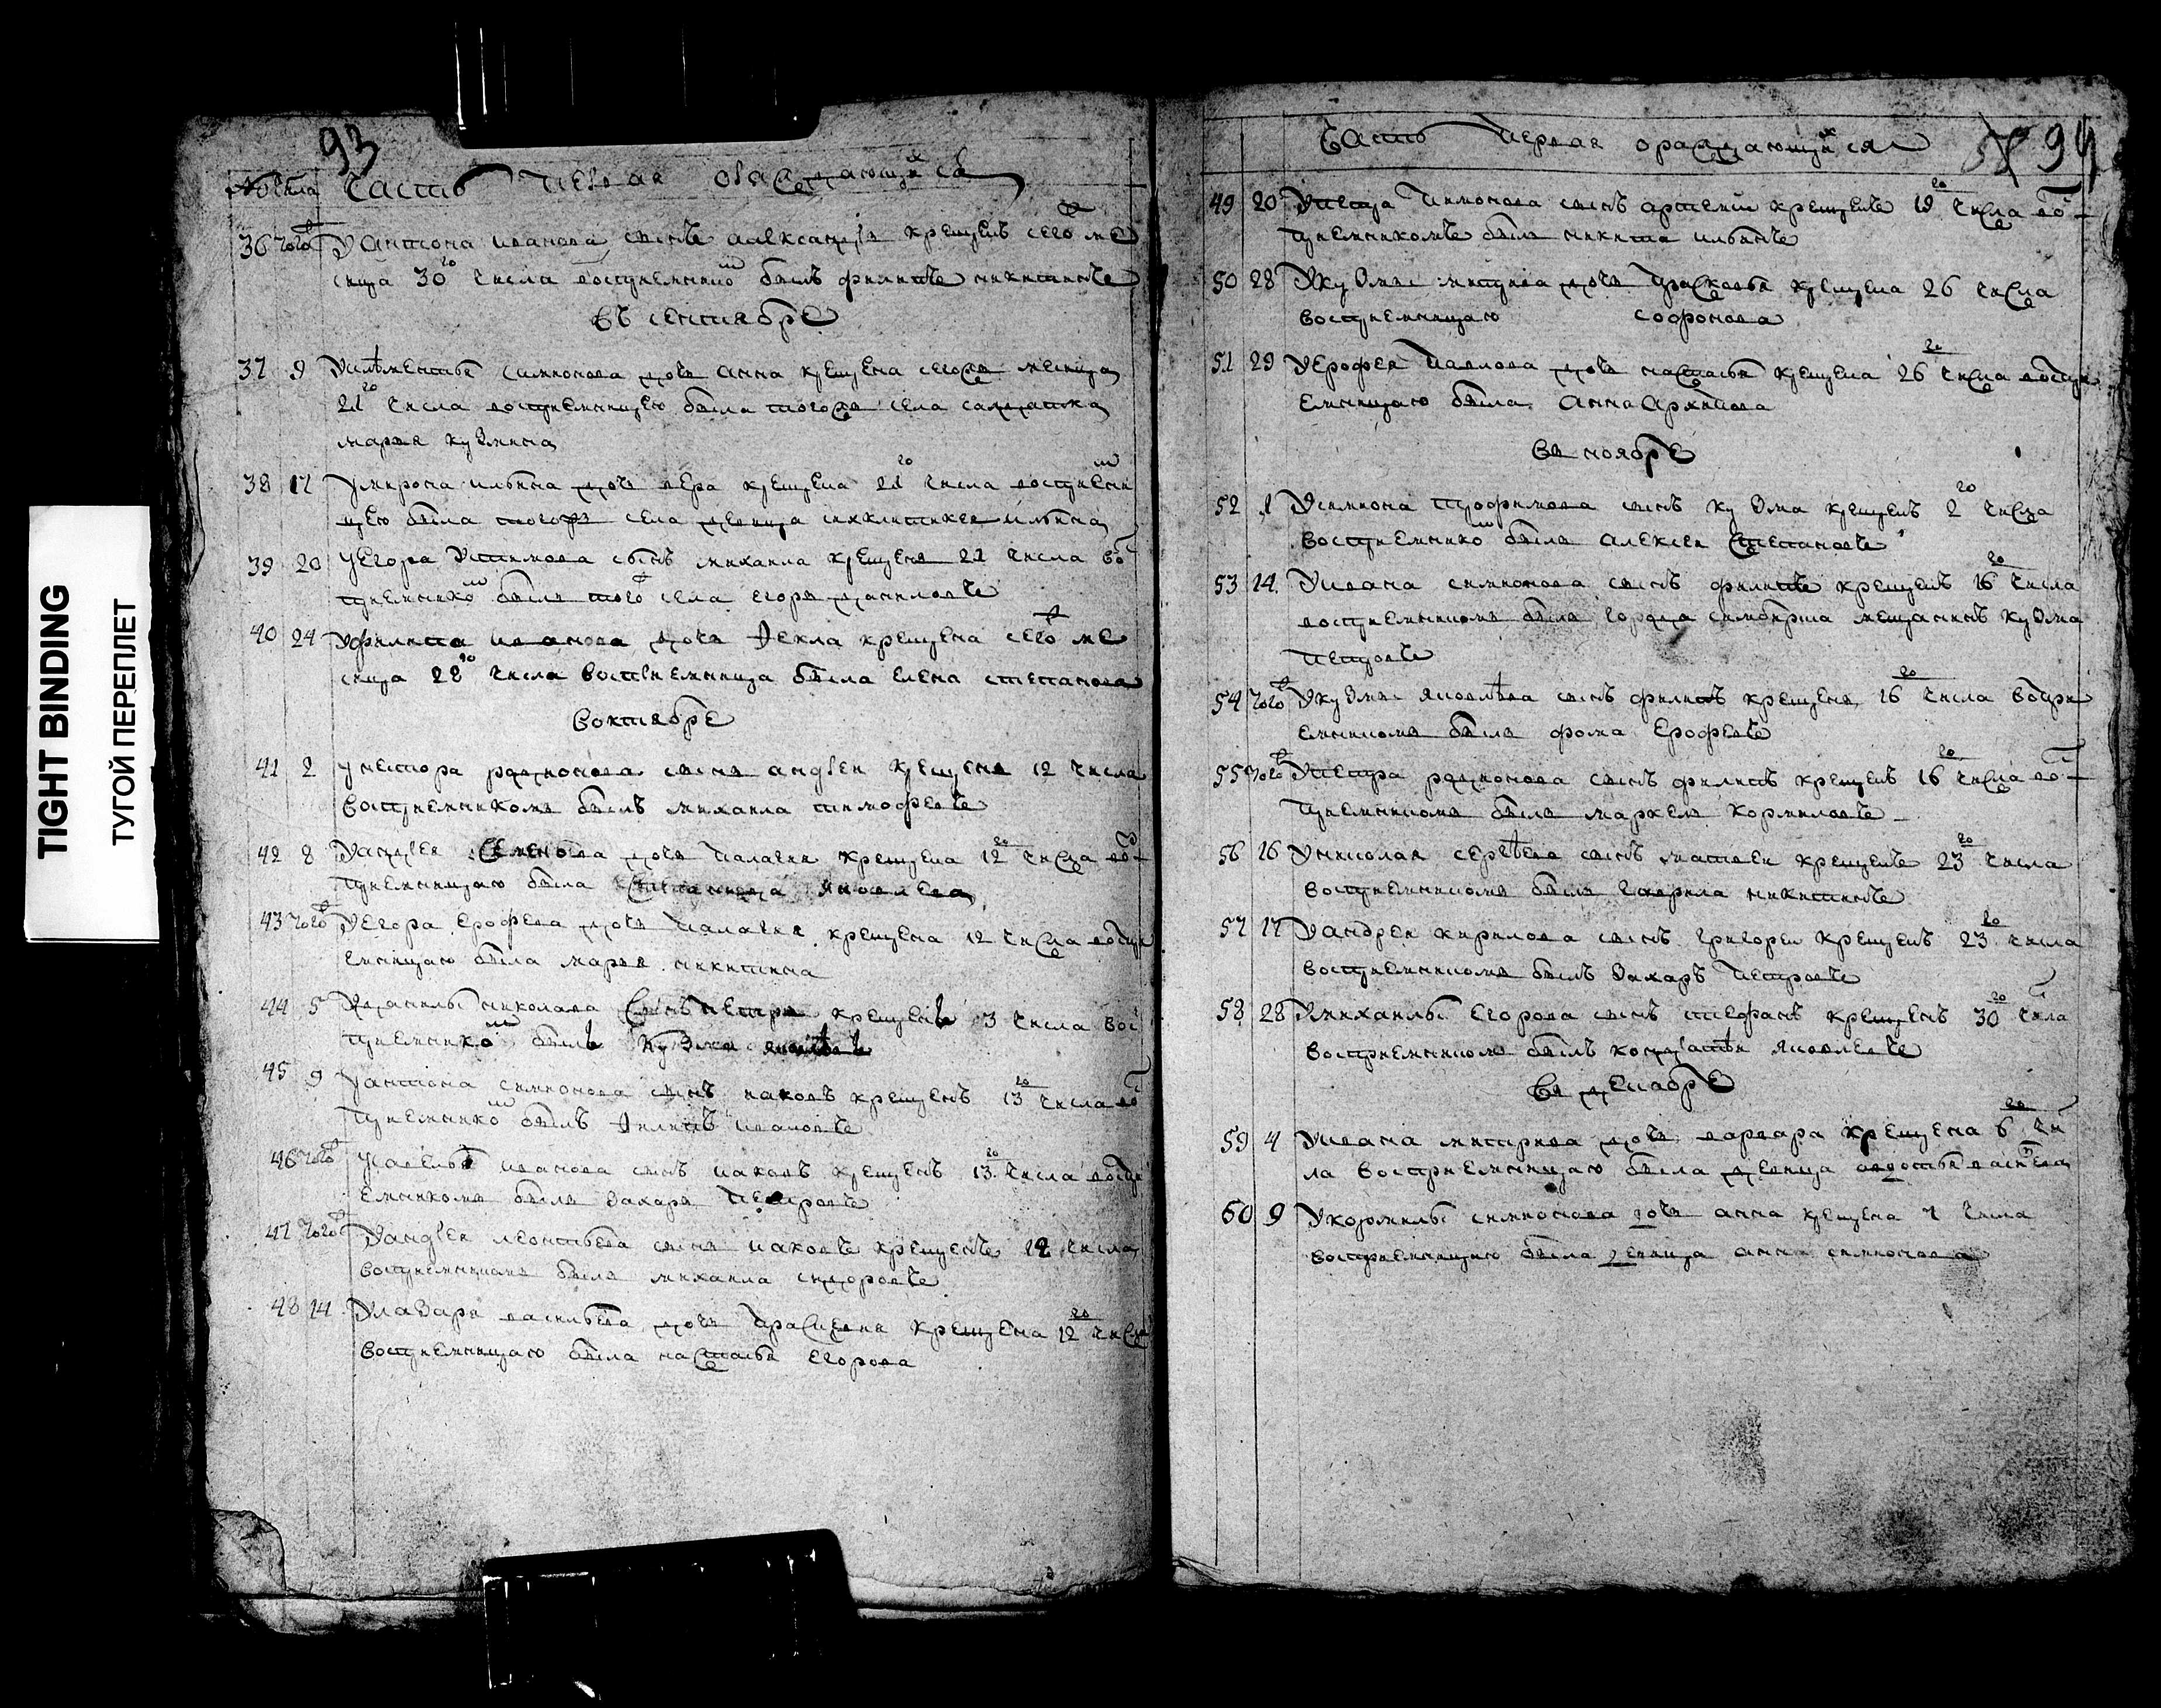 TIGHT BINDING
ТУГОЙ ПЕРЕПЛЕТ
93
№ числа Часть первая о раждающихся
36 того ж У Антона Иванова сынъ Александръ крещенъ сего ме
сяца 30го числа восприемником былъ Филипъ Никитинъ
Въ сентябре
37 9 Симионова дочь Анна крещена сегожъ месяца
21го числа восприемницею была тогожъ села салдатка
Марья Кузмина
38 17 У Мирона Ильина дочь Вера крещена 21го числа восприемни
цею была тогожъ села девица Ильина
39 20 У Егора Устимова сынъ Михаила крещенъ 21 числа вос
приемником былъ того ж села Егоръ Даниловъ
40 24 У Филипа Иванова дочь Фекла крещена сего ме
сяца 28го числа восприемница была Елена Степанова
В октябре
41 2 У Нестора Родионова сынъ Андреи крещенъ 12 числа
восприемникомъ былъ Михаила Тимофеевъ
42 8 У Андрея Семенова дочь Палагея крещена 12го числа вос
приемницаю была Яковлева
43 того ж У Егора Ерофеева дочь Палагея крещена 12 числа воспри
емницаю была Марья Никитина
44 5 У Данилы Николава сынъ Петръ крещенъ 13 числа вос
приемником былъ Кузма Яковлевъ
45 9 У Антона Симионова сынъ Иаковъ крещенъ 13го числа вос
приемником былъ Филипъ Ивановъ
46 того ж У Савелья Иванова сынъ Иаковъ крещенъ 13го числа воспри
емникомъ былъ Захаръ Петровъ
47 того ж У Андрея Леонтьева сынъ Иаковъ крещенъ 12 числа
восприемникомъ былъ Михаила Сидоровъ
48 14 У Лазаря Васильева дочь Прасковья крещена 12го числа
восприемницаю была Настасья Егорова
Часть первая о раждающихся 94
49 20 У Петра Пимонова сынъ Артемии крещенъ 19го числа вос
приемникомъ былъ Никита Ильинъ
50 28 У Кузмы Митриева дочь Прасковья крещена 26 числа
восприемницаю Софронова
51 29 У Ерофея Павлова дочь Настасья крещена 26го числа воспри
емницаю была Анна Архипова
Въ ноябре
52 1 У Симиона Трофимова сынъ Кузма крещенъ 2го числа
восприемником былъ Алексеи Степановъ
53 14 У Ивана Симионова сынъ Филипъ крещенъ 16го числа
восприемникомъ былъ города Симбирска мещанинъ Кузма
Петровъ
54 того ж У Кузмы Яковлева сынъ Филипъ крещенъ 16го числа воспри
емникомъ былъ Фома Ерофеевъ
55 того ж У Петра Родионова сынъ Филипъ крещенъ 16го числа вос
приемникомъ былъ Маркелъ Кормиловъ
56 16 У Николая Сергеева сынъ Матвеи крещенъ 23го числа
восприемникомъ былъ Гаврила Никитинъ
57 17 У Андрея Кирилова сынъ Григореи крещенъ 23го числа
восприемникомъ былъ Захаръ Петровъ
58 28 У Михаилы Егорова сынъ Стефанъ крещенъ 30го числа
восприемником былъ Кондратеи Яковлевъ
Въ декабре
59 4 У Ивана Митриева дочь Варвара крещена 6го чис
ла восприемницаю была девица Авдотья Васильева
60 9 У Кормилы Симионова дочь Анна крещена числа
восприемницаю была девица Анна Симионова